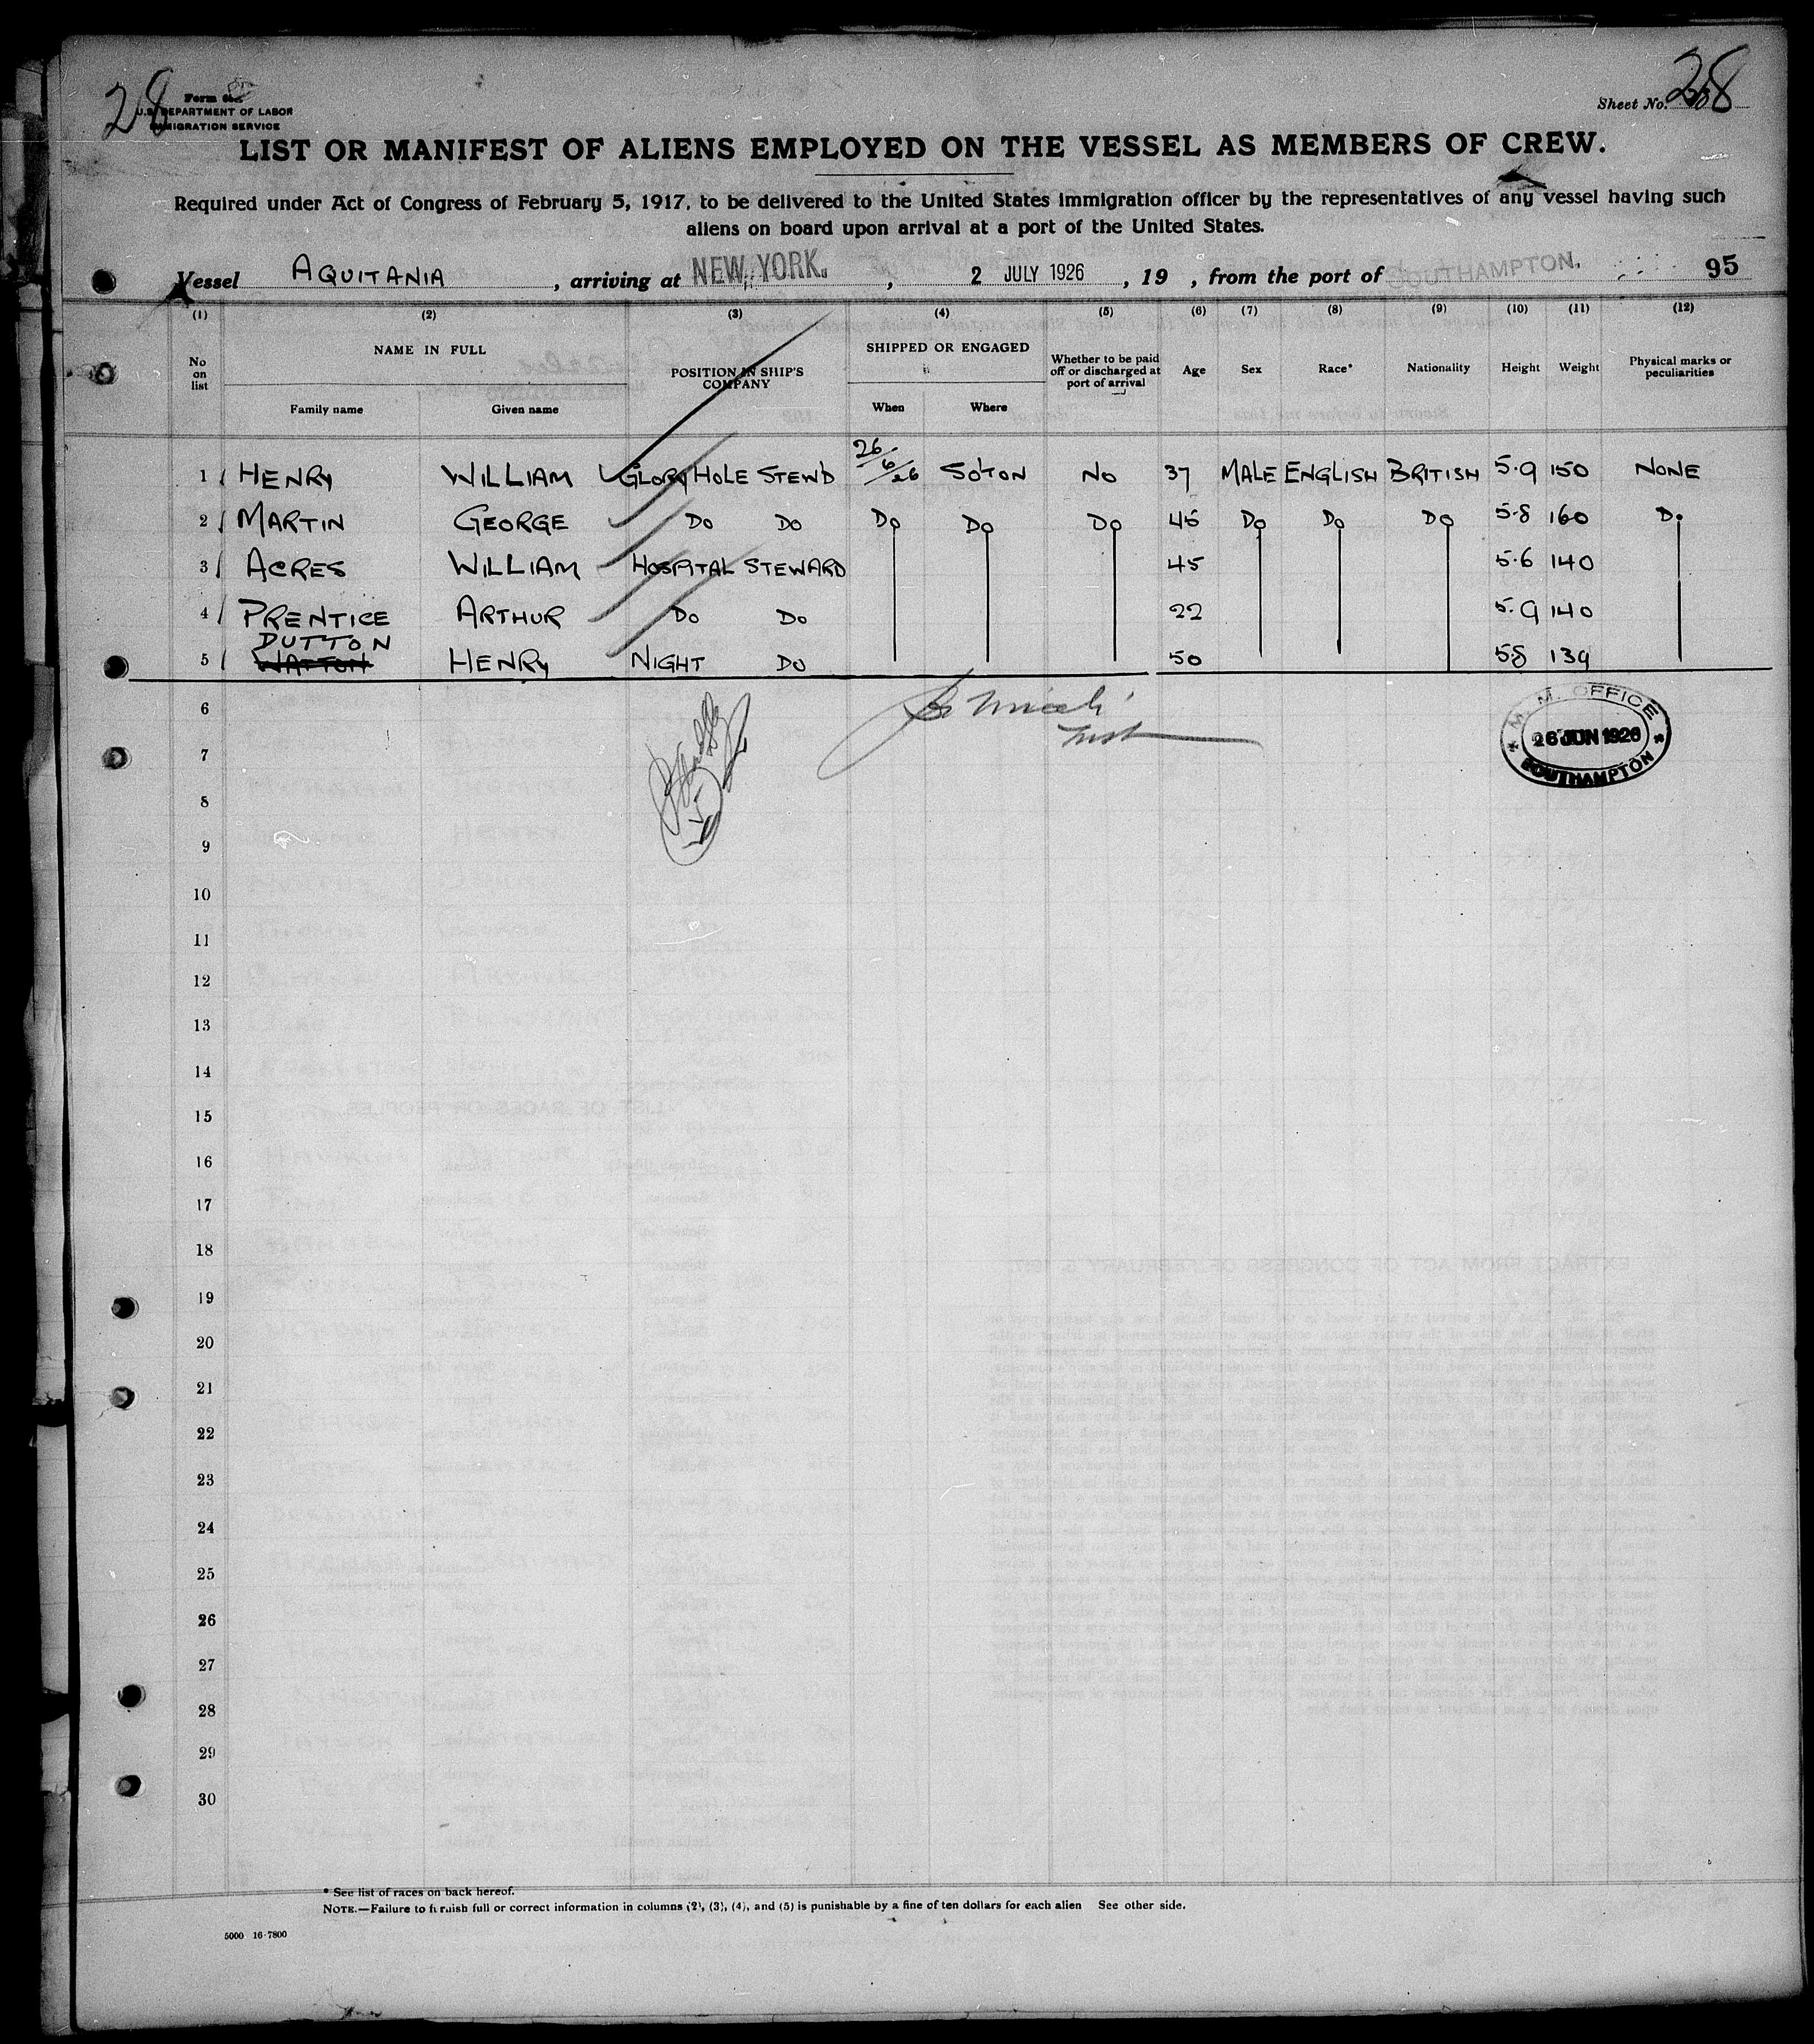 28
Form
U.S. DEPARTMENT OF LABOR
IMMIGRATION SERVICE
Sheet No. 28
LIST OR MANIFEST OF ALIENS EMPLOYED ON THE VESSEL AS MEMBERS OF CREW.
Required under Act of Congress of February 5, 1917, to be delivered to the United States immigration officer by the representatives of any vessel having such
aliens on board upon arrival at a port of the United States.
Vessel AQUITANIA, arriving at NEW YORK., 2 JULY 1926, 19 , from the port of SOUTHAMPTON. 95
(1) (2) (3) (4) (5) (6) (7) (8) (9) (10) (11) (12)
No on list NAME IN FULL POSITION IN SHIP'S COMPANY SHIPPED OR ENGAGED Whether to be paid off or discharged at port of arrival Age Sex Race* Nationality Height Weight Physical marks or peculiarities
Family name Given name When Where
1 HENRY WILLIAM GLORY HOLE STEWD 26/6/26 SO'TON NO 37 MALE ENGLISH BRITISH 5.9 150 NONE
2 MARTIN GEORGE DO DO DO DO DO 45 DO DO DO 5.8 160 DO
3 ACRES WILLIAM HOSPITAL STEWARD 45 5.6 140
4 PRENTICE ARTHUR DO DO 22 5.9 140
DUTTON
5 WATTON HENRY NIGHT DO 50 5.8 139
6
7
8
9
10
11
12
13
14
15
16
17
18
19
20
21
22
23
24
25
26
27
28
29
30
M. M. OFFICE
26 JUN 1926
SOUTHAMPTON
* See list of races on back hereof.
NOTE.—Failure to furnish full or correct information in columns (2), (3), (4), and (5) is punishable by a fine of ten dollars for each alien See other side.
5000 16-7800